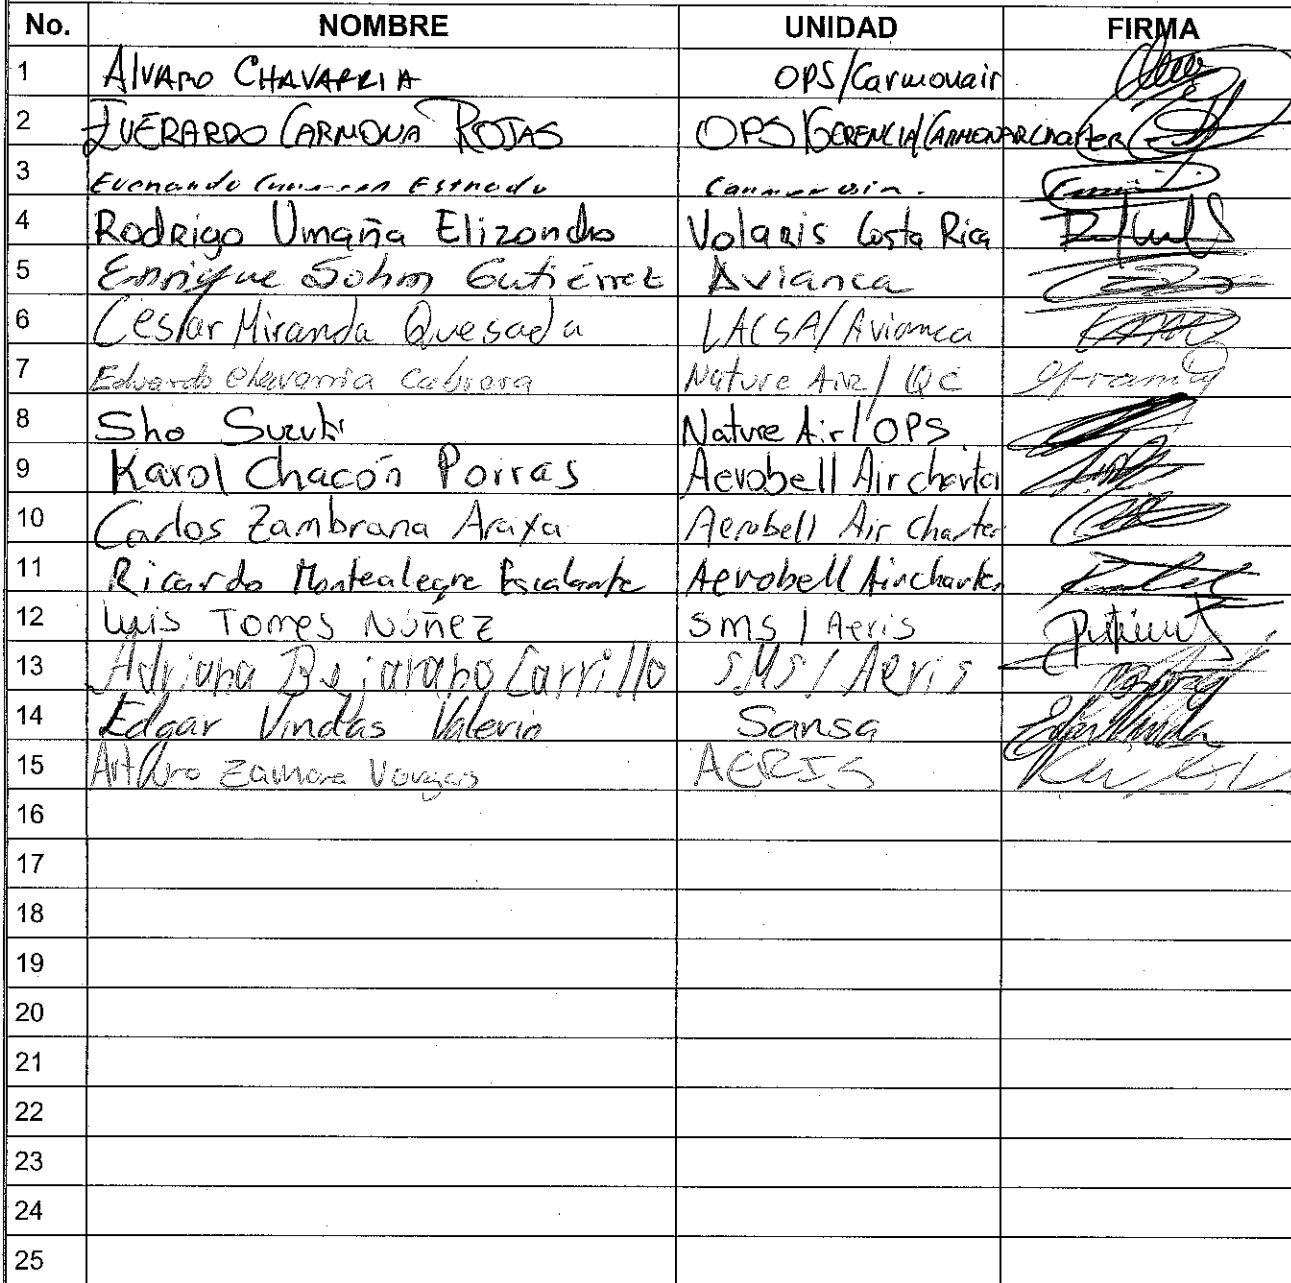 No. NOMBRE UNIDAD FIRMA
1 Alvaro CHAVARRIA OPS/Carmonair
2 EVERARDO CARMONA ROJAS OPS/GERENCIA/
3
4 Rodrigo Umaña Elizondo Volaris Costa Rica
5 Enrique Sohm Gutiérrez Avianca
6 Cesar Miranda Quesada LACSA/Avianca
7 Eduardo Chavarria Cabrera Nature Air/QC
8 Sho Suzuki Nature Air/OPS
9 Karol Chacón Porras Aerobell Air charter
10 Carlos Zambrana Araya Aerobell Air Charter
11 Ricardo Montealegre Escalante Aerobell Aircharter
12 Luis Torres Núñez SMS / Aeris
13 Adriana Bejarano Carrillo SMS / Aeris
14 Edgar Vindas Valerio Sansa
15 Arturo Zamora Vargas AERIS
16
17
18
19
20
21
22
23
24
25